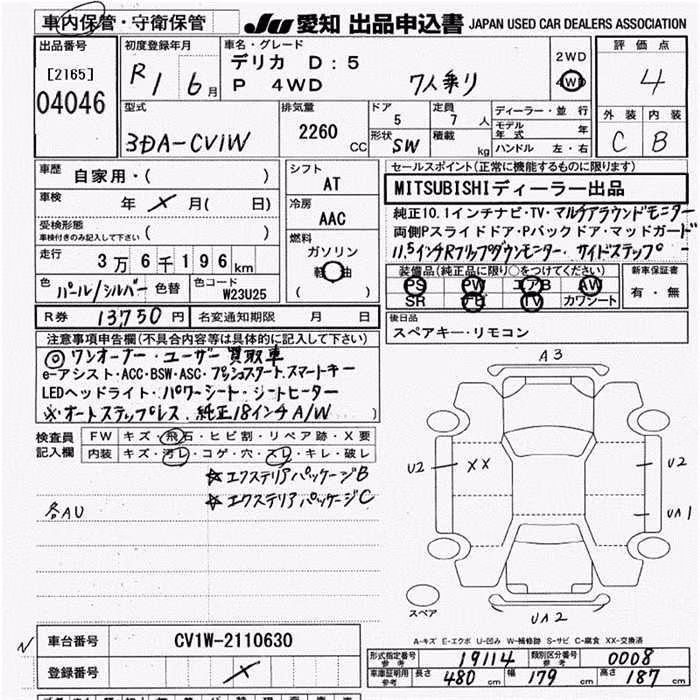 車内保管・守衛保管
JU 愛知 出品申込書 JAPAN USED CAR DEALERS ASSOCIATION
出品番号 初度登録年月 車名・グレード 評価点
[2165] R1 6月 デリカ D:5 2WD
04046 P 4WD 7人乗り 4WD 4
型式 排気量 ドア 定員 ディーラー・並行 外装 内装
3DA-CV1W 2260 CC 5 7人 モデル年式 年 C B
形状 SW 積載 kg ハンドル 左・右
車歴 自家用・( ) シフト AT セールスポイント(正常に機能するものに限ります)
車検 年 月( 日) 冷房 AAC MITSUBISHIディーラー出品
受検形態 車検付きのみ記入して下さい ( ) 純正10.1インチナビ・TV・マルチアラウンドモニター
燃料 ガソリン 両側Pスライドドア・Pバックドア・マッドガード
走行 3万6千196km 軽油 11.5インチRフリップダウンモニター サイドステップ
( ) 装備品(純正品に限り○をつけてください) 新車保証書
色 パール/シルバー 色替 色コード W23U25 PS PW エアB AW 有・無
SR ナビ TV カワシート
R券 13750円 名変通知期限 月 日 後日品
スペアキー・リモコン
注意事項申告欄(不具合内容等は具体的に記入して下さい)
◎ワンオーナー・ユーザー買取車
e-アシスト・ACC・BSW・ASC・プッシュスタート スマートキー
LEDヘッドライト・パワーシート・シートヒーター
※オートステップレス 純正18インチA/W )
検査員記入欄 FW キズ・飛石・ヒビ割・リペア跡・X要
内装 キズ・汚レ・コゲ・穴・スレ・キレ・破レ
☆エクステリアパッケージB
☆エクステリアパッケージC
各AU
A3
U2 XX U2
UA1
スペア UA2
A-キズ E-エクボ U-凹み W-補修跡 S-サビ C-腐食 XX-交換済
N 車台番号 CV1W-2110630
登録番号
形式指定番号 参考 19114 類別区分番号 参考 0008
車庫証明用 参考 長さ 480cm 幅 179cm 高さ 187cm